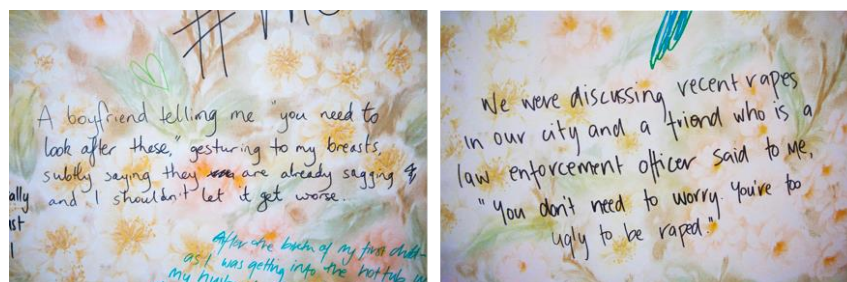 A boyfriend telling me "you need to
look after these," gesturing to my breasts
subtly saying they are already sagging &
and I shouldn't let it get worse.
ally
st
After the birth of my first child-
as I was getting into the hot tub
my
We were discussing recent rapes
in our city and a friend who is a
law enforcement officer said to me,
"You don't need to worry. You're too
ugly to be raped."